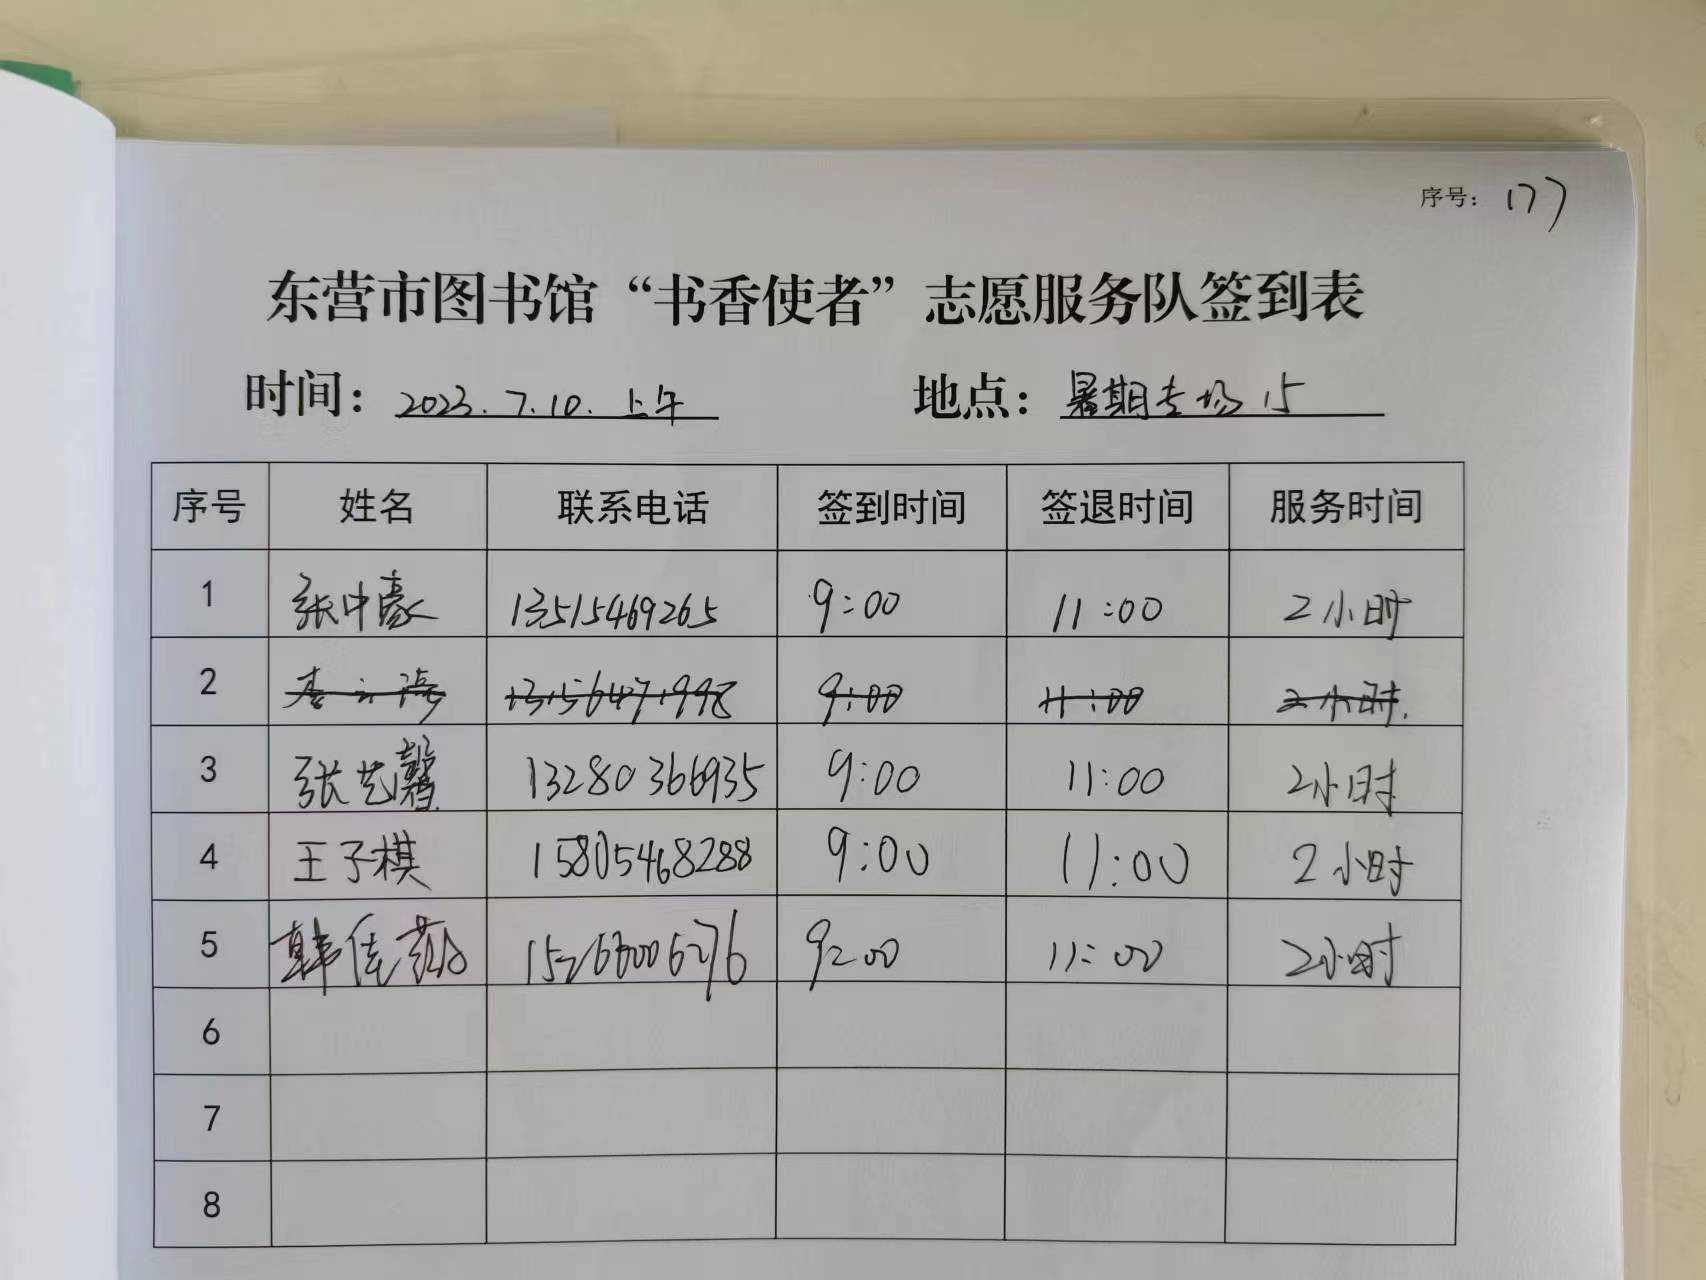 序号： 177
东营市图书馆“书香使者”志愿服务队签到表
时间： 2023.7.10.上午 地点： 暑期专场15
序号 姓名 联系电话 签到时间 签退时间 服务时间
1 张中豪 13515469265 9:00 11:00 2小时
2 李 9:00 11:00 2小时.
3 张艺馨 13280366935 9:00 11:00 2小时
4 王子棋 15805468288 9:00 11:00 2小时
5 韩佳 9:00 11:00 2小时
6
7
8